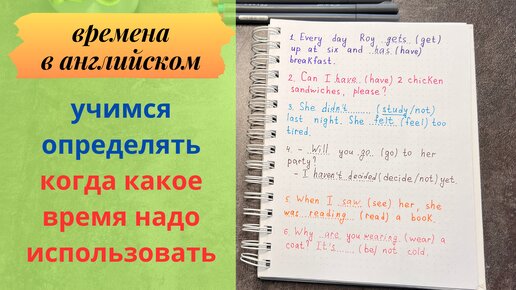 времена
в английском
учимся
определять
когда какое
время надо
использовать
1. Every day Roy gets (get)
up at six and has (have)
breakfast.
2. Can I have (have) 2 chicken
sandwiches, please?
3. She didn't ........ (study/not)
last night. She felt (feel) too
tired.
4. - Will you go (go) to her
party?
- I haven't decided (decide/not) yet.
5. When I saw (see) her, she
was reading (read) a book.
6. Why are you wearing (wear) a
coat? It's ....... (be) not cold.